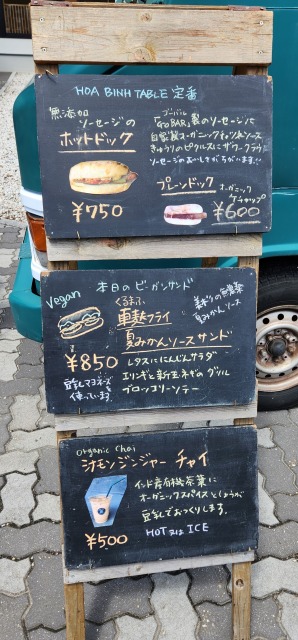 HOA BINH TABLE 定番
無添加
ソーセージの
ホットドック
¥750
ブーバル
「GO BAR」製のソーセージに
自家製オーガニックチリソース
きゅうりのピクルスにザワークラウト
ソーセージのおいしさがちがいます!!
プレーンドック
オーガニック
ケチャップ
¥600
本日のビーガンサンド
Vegan
くるまふ
車麩フライ
夏みかんソースサンド
無農薬
夏みかんソース
¥850
豆乳マヨネーズを
使っています
レタスににんじんサラダ
エリンギと新玉ネギのグリル
ブロッコリーソテー
Organic Chai
シナモンジンジャー チャイ
インド産有機茶葉に
オーガニックスパイスとしょうが
豆乳でおつくりします。
HOT 又は ICE
¥500